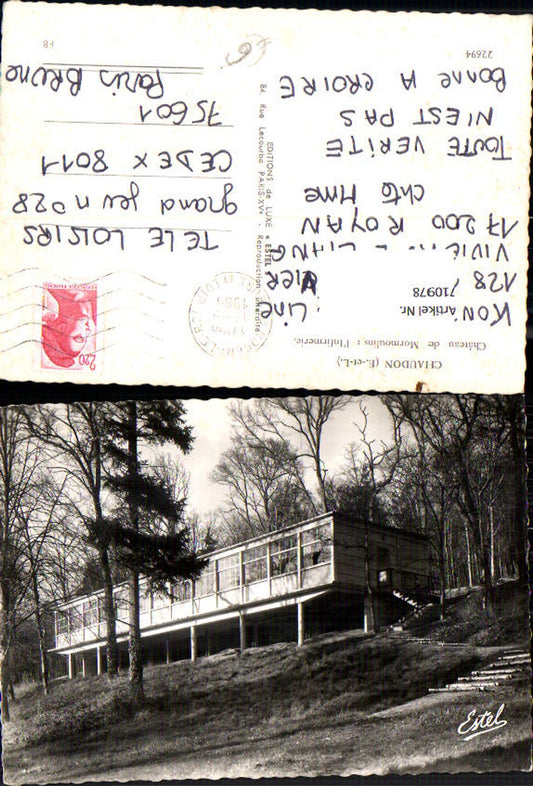 CHAUDON (E.-et-L.)
Château de Mormoulins : l'Infirmerie.
KON
LINE
Artikel Nr.
710978
128
17200 ROYAN
chto Mme
TOUTE VERITE
N'EST PAS
BONNE A CROIRE
22694
EDITIONS de LUXE « ESTEL »
84, Rue Lecourbe PARIS-XVe - Reproduction interdite
2,20
1986
TELE LOISIRS
grand jeu n°28
CEDEX 8011
75601
PARIS BRUNE
FB
6
Estel